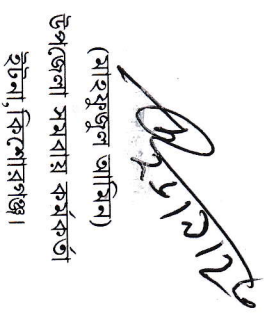 (মাহফুজুল আমিন)
উপজেলা সমবায় কর্মকর্তা
ইটনা, কিশোরগঞ্জ।